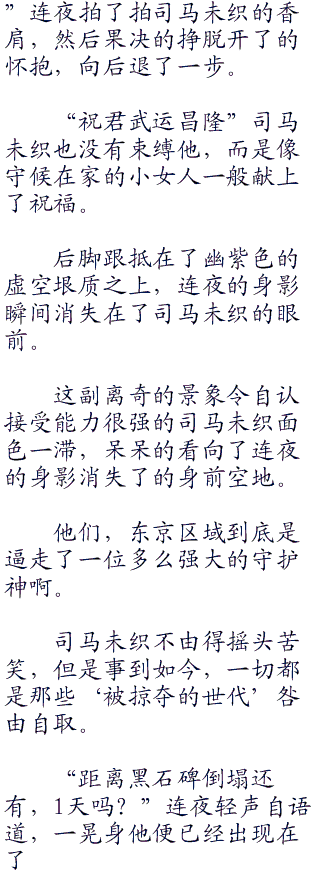 ”连夜拍了拍司马未织的香
肩，然后果决的挣脱开了的
怀抱，向后退了一步。
“祝君武运昌隆”司马
未织也没有束缚他，而是像
守候在家的小女人一般献上
了祝福。
后脚跟抵在了幽紫色的
虚空垠质之上，连夜的身影
瞬间消失在了司马未织的眼
前。
这副离奇的景象令自认
接受能力很强的司马未织面
色一滞，呆呆的看向了连夜
的身影消失了的身前空地。
他们，东京区域到底是
逼走了一位多么强大的守护
神啊。
司马未织不由得摇头苦
笑，但是事到如今，一切都
是那些‘被掠夺的世代’咎
由自取。
“距离黑石碑倒塌还
有，1天吗？”连夜轻声自语
道，一晃身他便已经出现在
了